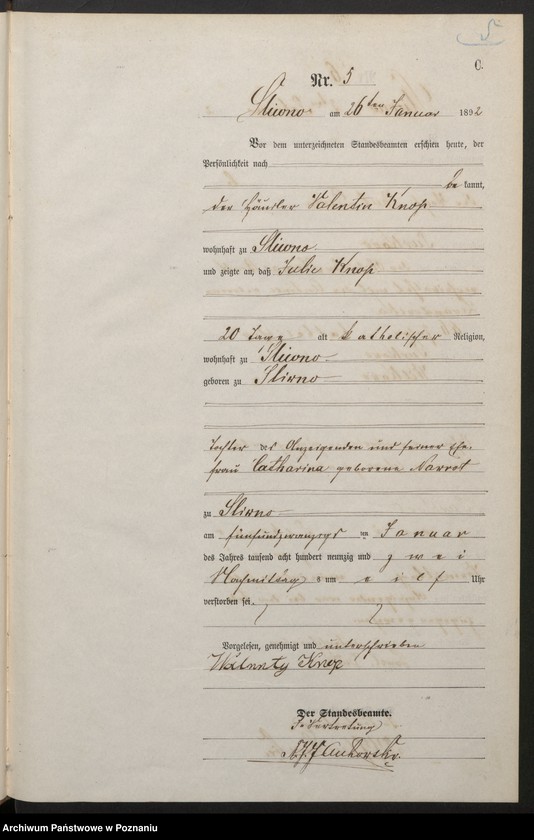 5
C.
Nr. 5
Sliwno am 26ten Januar 1892
Vor dem unterzeichneten Standesbeamten erschien heute, der
Persönlichkeit nach
be kannt,
der Häusler Valentin Knop
wohnhaft zu Sliwno
und zeigte an, daß Julie Knop
20 Tage alt katholischer Religion,
wohnhaft zu Sliwno
geboren zu Sliwno
Tochter des Anzeigenden und seiner Ehe-
frau Catharina geborene
zu Sliwno
am fünfundzwanzigs ten Januar
des Jahres tausend acht hundert neunzig und zwei
Nachmittags um eilf Uhr
verstorben sei.
Vorgelesen, genehmigt und unterschrieben
Walenty Knop
Der Standesbeamte.
In Vertretung
Archiwum Państwowe w Poznaniu